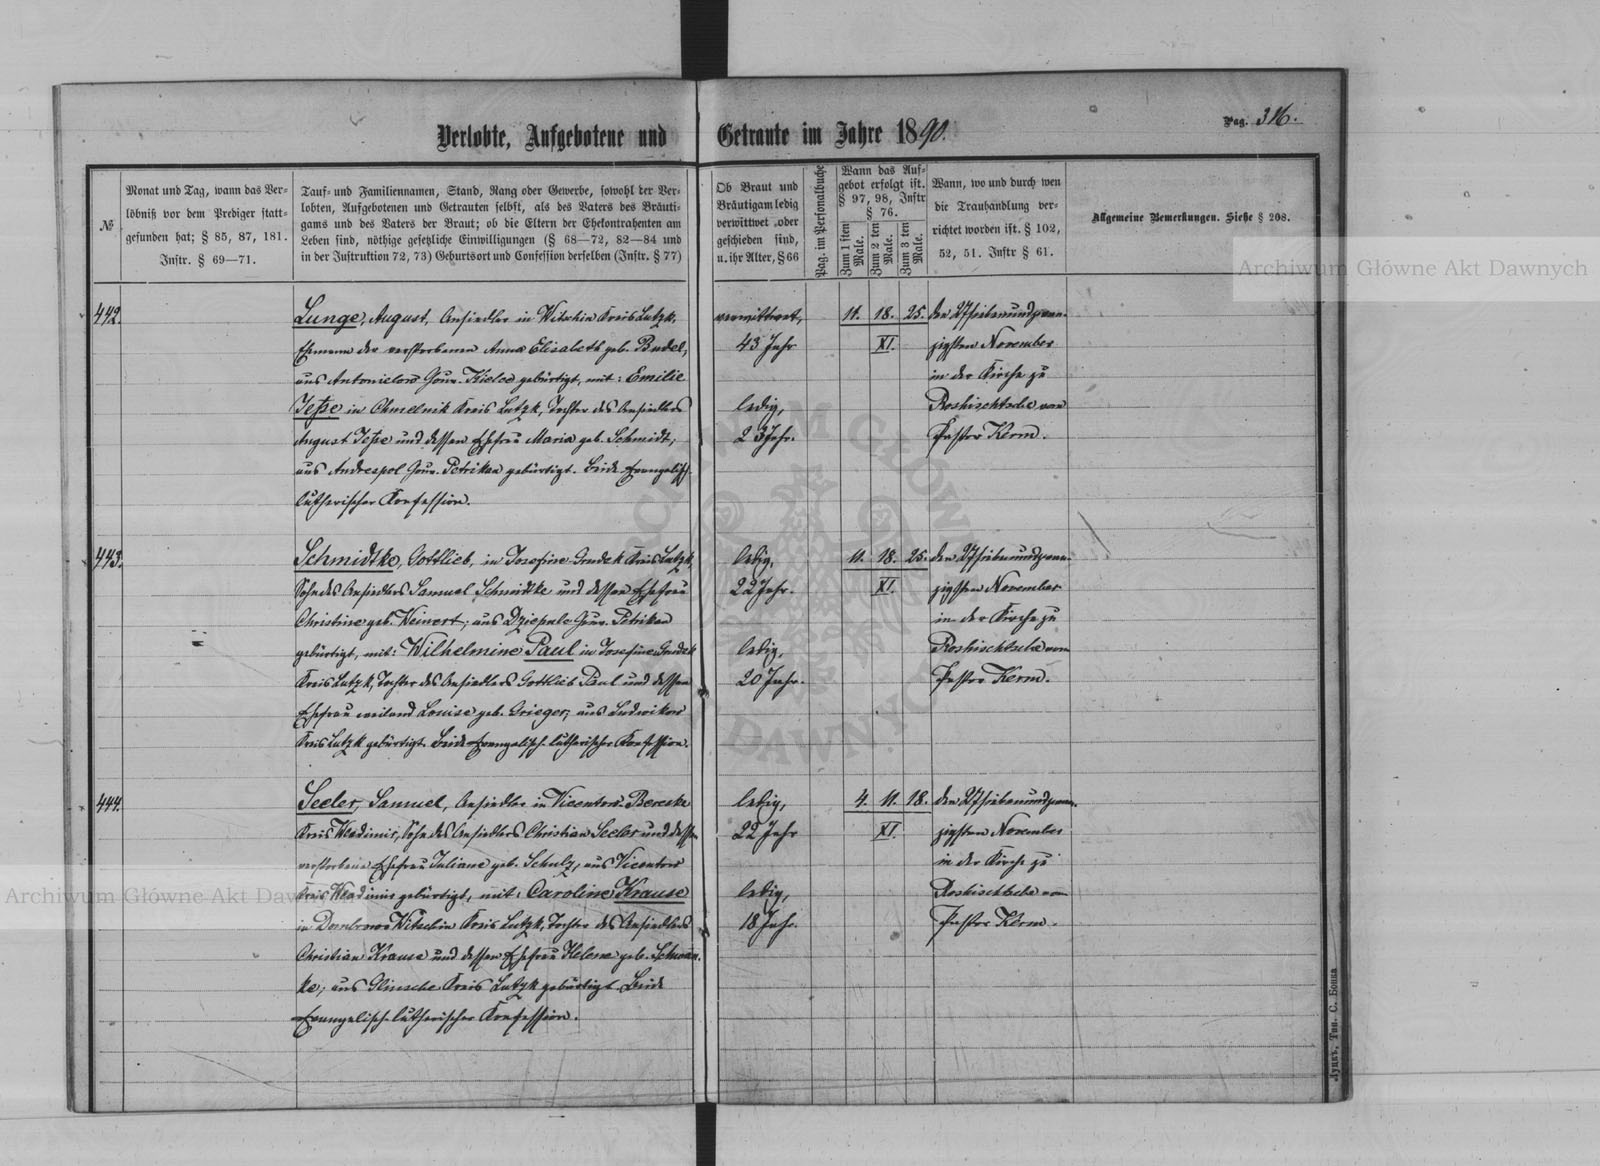 Verlobte, Aufgebotene und Getraute im Jahre 1890.
Pag. 316.
№
Monat und Tag, wann das Ver-
löbniß vor dem Prediger statt-
gefunden hat; § 85, 87, 181.
Instr. § 69—71.
Tauf- und Familiennamen, Stand, Rang oder Gewerbe, sowohl der Ver-
lobten, Aufgebotenen und Getrauten selbst, als des Vaters des Bräuti-
gams und des Vaters der Braut; ob die Eltern der Ehekontrahenten am
Leben sind, nöthige gesetzliche Einwilligungen (§ 68—72, 82—84 und
in der Instruktion 72, 73) Geburtsort und Confession derselben (Instr. § 77)
Ob Braut und
Bräutigam ledig
verwittwet oder
geschieden sind,
u. ihr Alter, § 66
Pag. im Personalbuche
Wann das Auf-
gebot erfolgt ist.
§ 97, 98, Instr
§ 76.
Zum 1 sten
Male.
Zum 2 ten
Male.
Zum 3 ten
Male.
Wann, wo und durch wen
die Trauhandlung ver-
richtet worden ist. § 102,
52, 51. Instr § 61.
Allgemeine Bemerkungen. Siehe § 208.
442.
Lunge, August, Ansiedler in Witschin Kreis Lutzk,
Ehemann der verstorbenen Anna Elisabeth geb. Budel,
aus Antonielow Gouv. Kielce gebürtigt, mit: Emilie
Jeße in Chmelnik Kreis Lutzk, Tochter des Ansiedlers
August Jeße und dessen Ehefrau Maria geb. Schmidt,
aus Andrespol Gouv. Petrikau gebürtigt. Beide Evangelisch
lutherischer Konfession.
verwittwet,
43 Jahr
ledig,
23 Jahr.
11. 18. 25.
XI.
den 27 siebenundzwan-
zigsten November
in der Kirche zu
Roshischtsche von
Pastor Kerm.
443.
Schmidtke, Gottlieb, in Josefine Grudek Kreis Lutzk,
Sohn des Ansiedlers Samuel Schmidtke und dessen Ehefrau
Christine geb. Weinert, aus Dziepulc Gouv. Petrikau
gebürtigt, mit: Wilhelmine Paul in Josefine Grudek
Kreis Lutzk, Tochter des Ansiedlers Gottlieb Paul und dessen
Ehefrau weiland Louise geb. Grieger, aus Ludwikow
Kreis Lutzk gebürtigt. Beide Evangelisch-lutherischer Konfession.
ledig,
22 Jahr.
ledig,
20 Jahr.
11. 18. 25.
XI.
den 27 siebenundzwan-
zigsten November
in der Kirche zu
Roshischtsche von
Pastor Kerm.
444.
Seeler, Samuel, Ansiedler in Vicentow-Bereske
Kreis Wladimir, Sohn des Ansiedlers Christian Seeler und dessen
verstorbene Ehefrau Juliane geb. Schulz, aus Vicentow
Kreis Wladimir gebürtigt, mit: Caroline Krause
in Dombrowa Witschin Kreis Lutzk, Tochter des Ansiedlers
Christian Krause und dessen Ehefrau Helene geb. Schwan-
ke, aus Glinsche Kreis Lutzk gebürtigt. Beide
Evangelisch-lutherischer Konfession.
ledig,
22 Jahr
ledig,
18 Jahr.
4. 11. 18.
XI.
den 27 siebenundzwan-
zigsten November
in der Kirche zu
Roshischtsche von
Pastor Kerm.
Луцкъ, Тип. С. Бонка
Archiwum Główne Akt Dawnych
Archiwum Główne Akt Dawnych